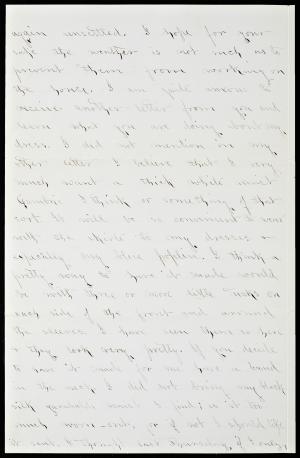 again unsettled. I hope for your
sake the weather is not such as to
prevent them from working on
the house. I am quite anxious to
receive another letter from you and
learn what you are doing about my
dress. I did not mention in my
other letter I believe that I very
much want a thick white waist
Cambric I think or something of that
sort. It will be so convenient to wear
with the skirts to my dresses
especially my blue poplin. I think a
pretty way to have it made would
be with three or more little tucks on
each side of the front and around
the sleeves. I have seen them so here
& they look very pretty. If you decide
to have it made for me have a band
in the neck. I did not bring my black
silk waist I
much worn and if not I should like
it sent.